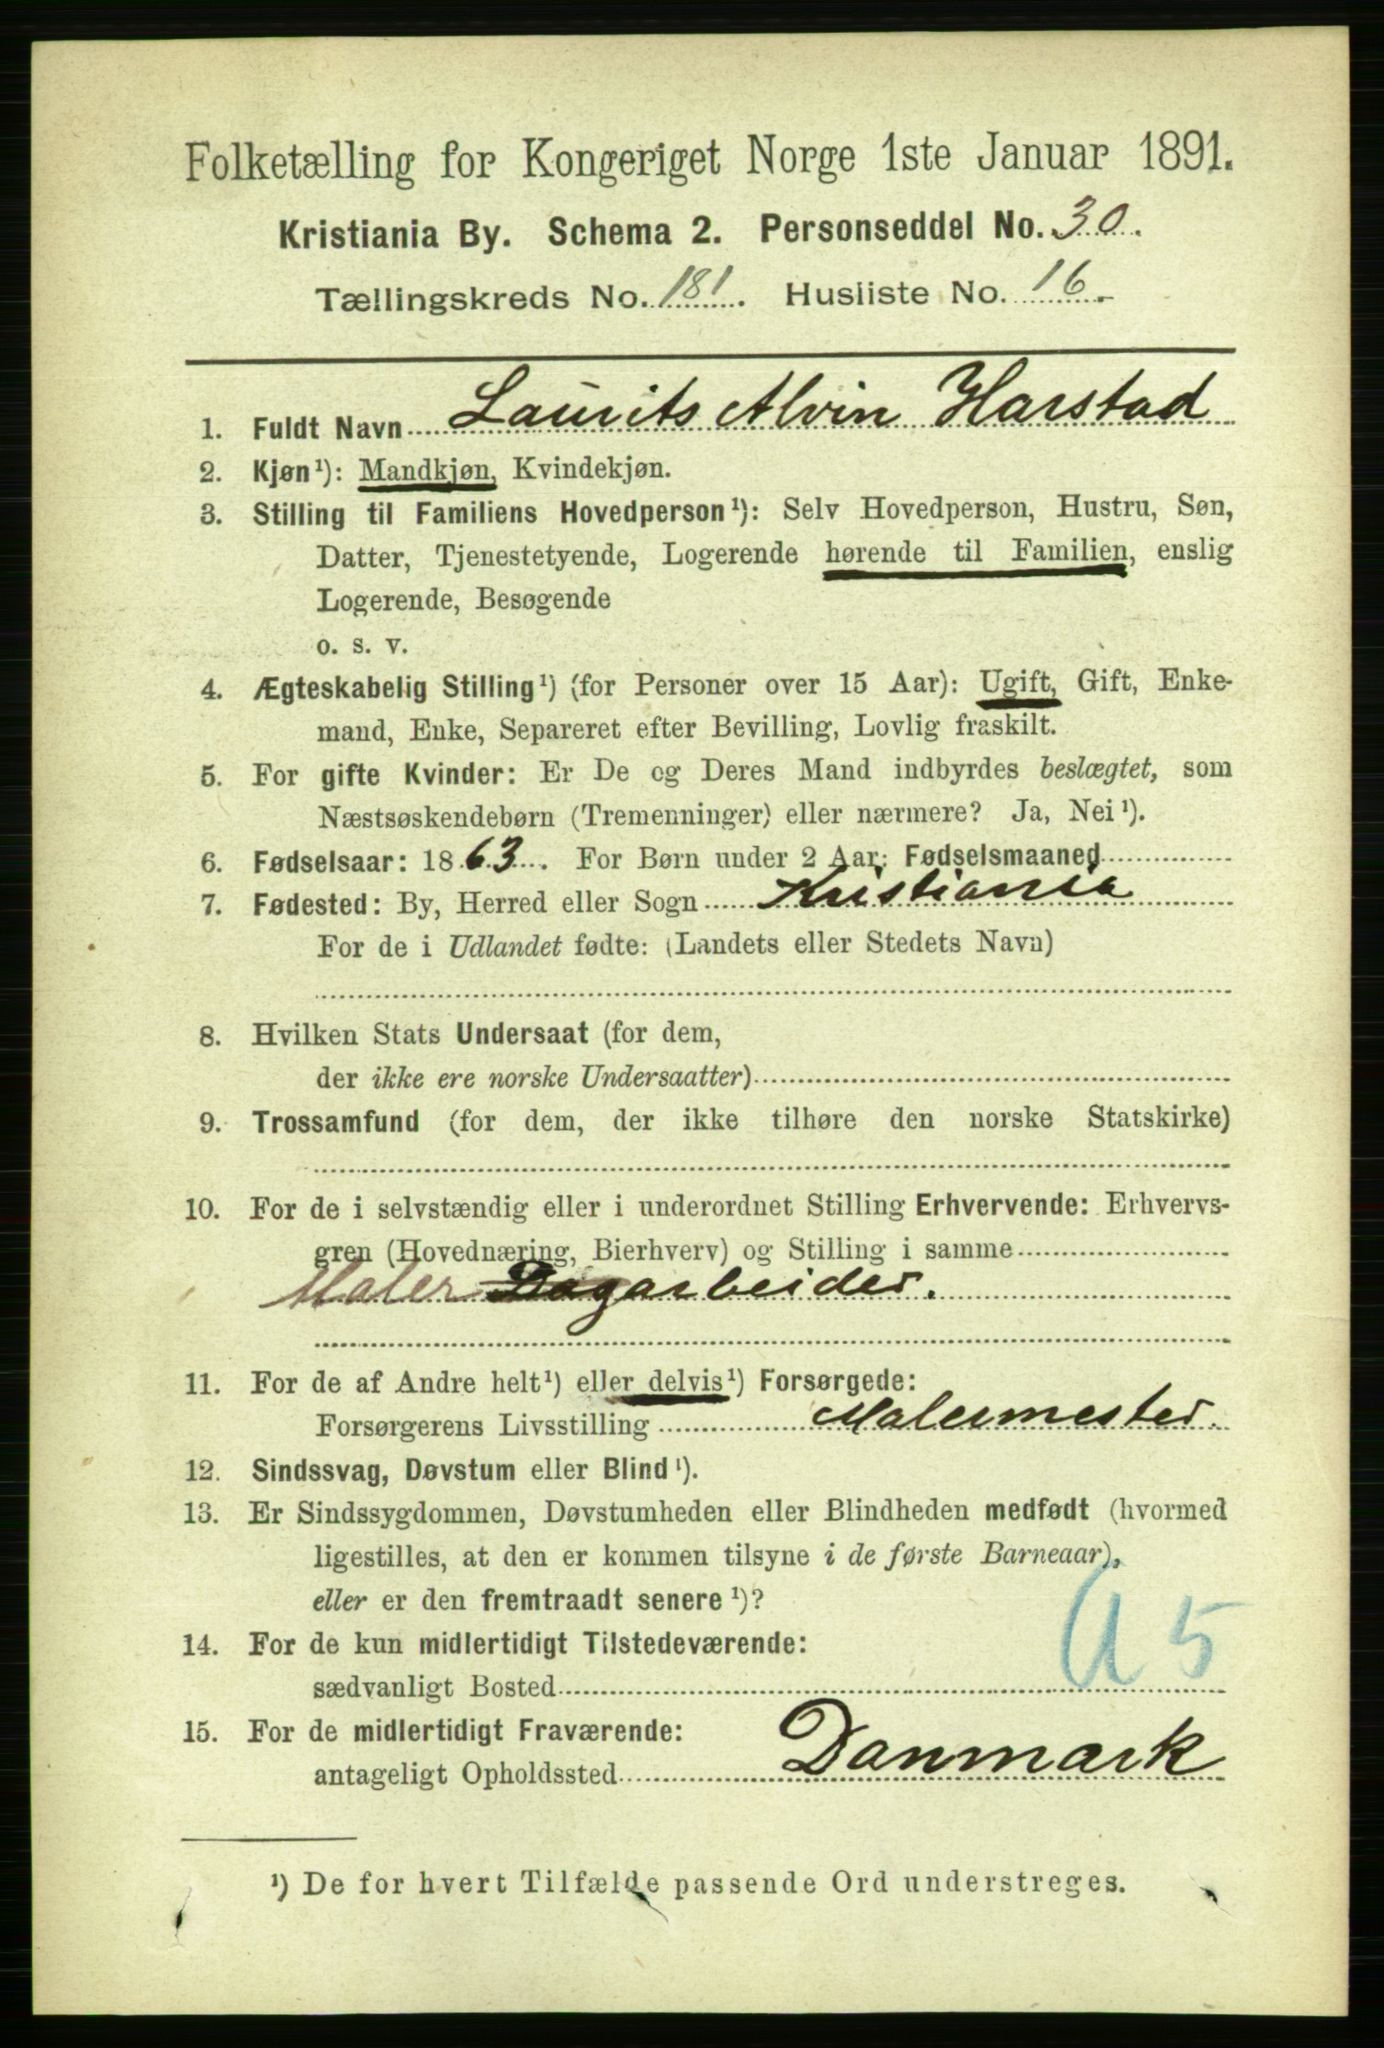 Folketælling for Kongeriget Norge 1ste Januar 1891.
Kristiania By. Schema 2. Personseddel No. 30.
Tællingskreds No. 181. Husliste No. 16.
1. Fuldt Navn Laurits Alvin Harstad
2. Kjøn¹): Mandkjøn, Kvindekjøn.
3. Stilling til Familiens Hovedperson¹): Selv Hovedperson, Hustru, Søn,
Datter, Tjenestetyende, Logerende hørende til Familien, enslig
Logerende, Besøgende
o. s. v.
4. Ægteskabelig Stilling¹) (for Personer over 15 Aar): Ugift, Gift, Enke-
mand, Enke, Separeret efter Bevilling, Lovlig fraskilt.
5. For gifte Kvinder: Er De og Deres Mand indbyrdes beslægtet, som
Næstsøskendebørn (Tremenninger) eller nærmere? Ja, Nei¹).
6. Fødselsaar: 1863. For Børn under 2 Aar: Fødselsmaaned
7. Fødested: By, Herred eller Sogn Kristiania
For de i Udlandet fødte: (Landets eller Stedets Navn)
8. Hvilken Stats Undersaat (for dem,
der ikke ere norske Undersaatter)
9. Trossamfund (for dem, der ikke tilhøre den norske Statskirke)
10. For de i selvstændig eller i underordnet Stilling Erhvervende: Erhvervs-
gren (Hovednæring, Bierhverv) og Stilling i samme
Maler Dagarbeider.
11. For de af Andre helt¹) eller delvis¹) Forsørgede:
Forsørgerens Livsstilling Malermester.
12. Sindssvag, Døvstum eller Blind¹).
13. Er Sindssygdommen, Døvstumheden eller Blindheden medfødt (hvormed
ligestilles, at den er kommen tilsyne i de første Barneaar),
eller er den fremtraadt senere¹)?
14. For de kun midlertidigt Tilstedeværende:
sædvanligt Bosted
a 5
15. For de midlertidigt Fraværende:
antageligt Opholdssted Danmark
¹) De for hvert Tilfælde passende Ord understreges.